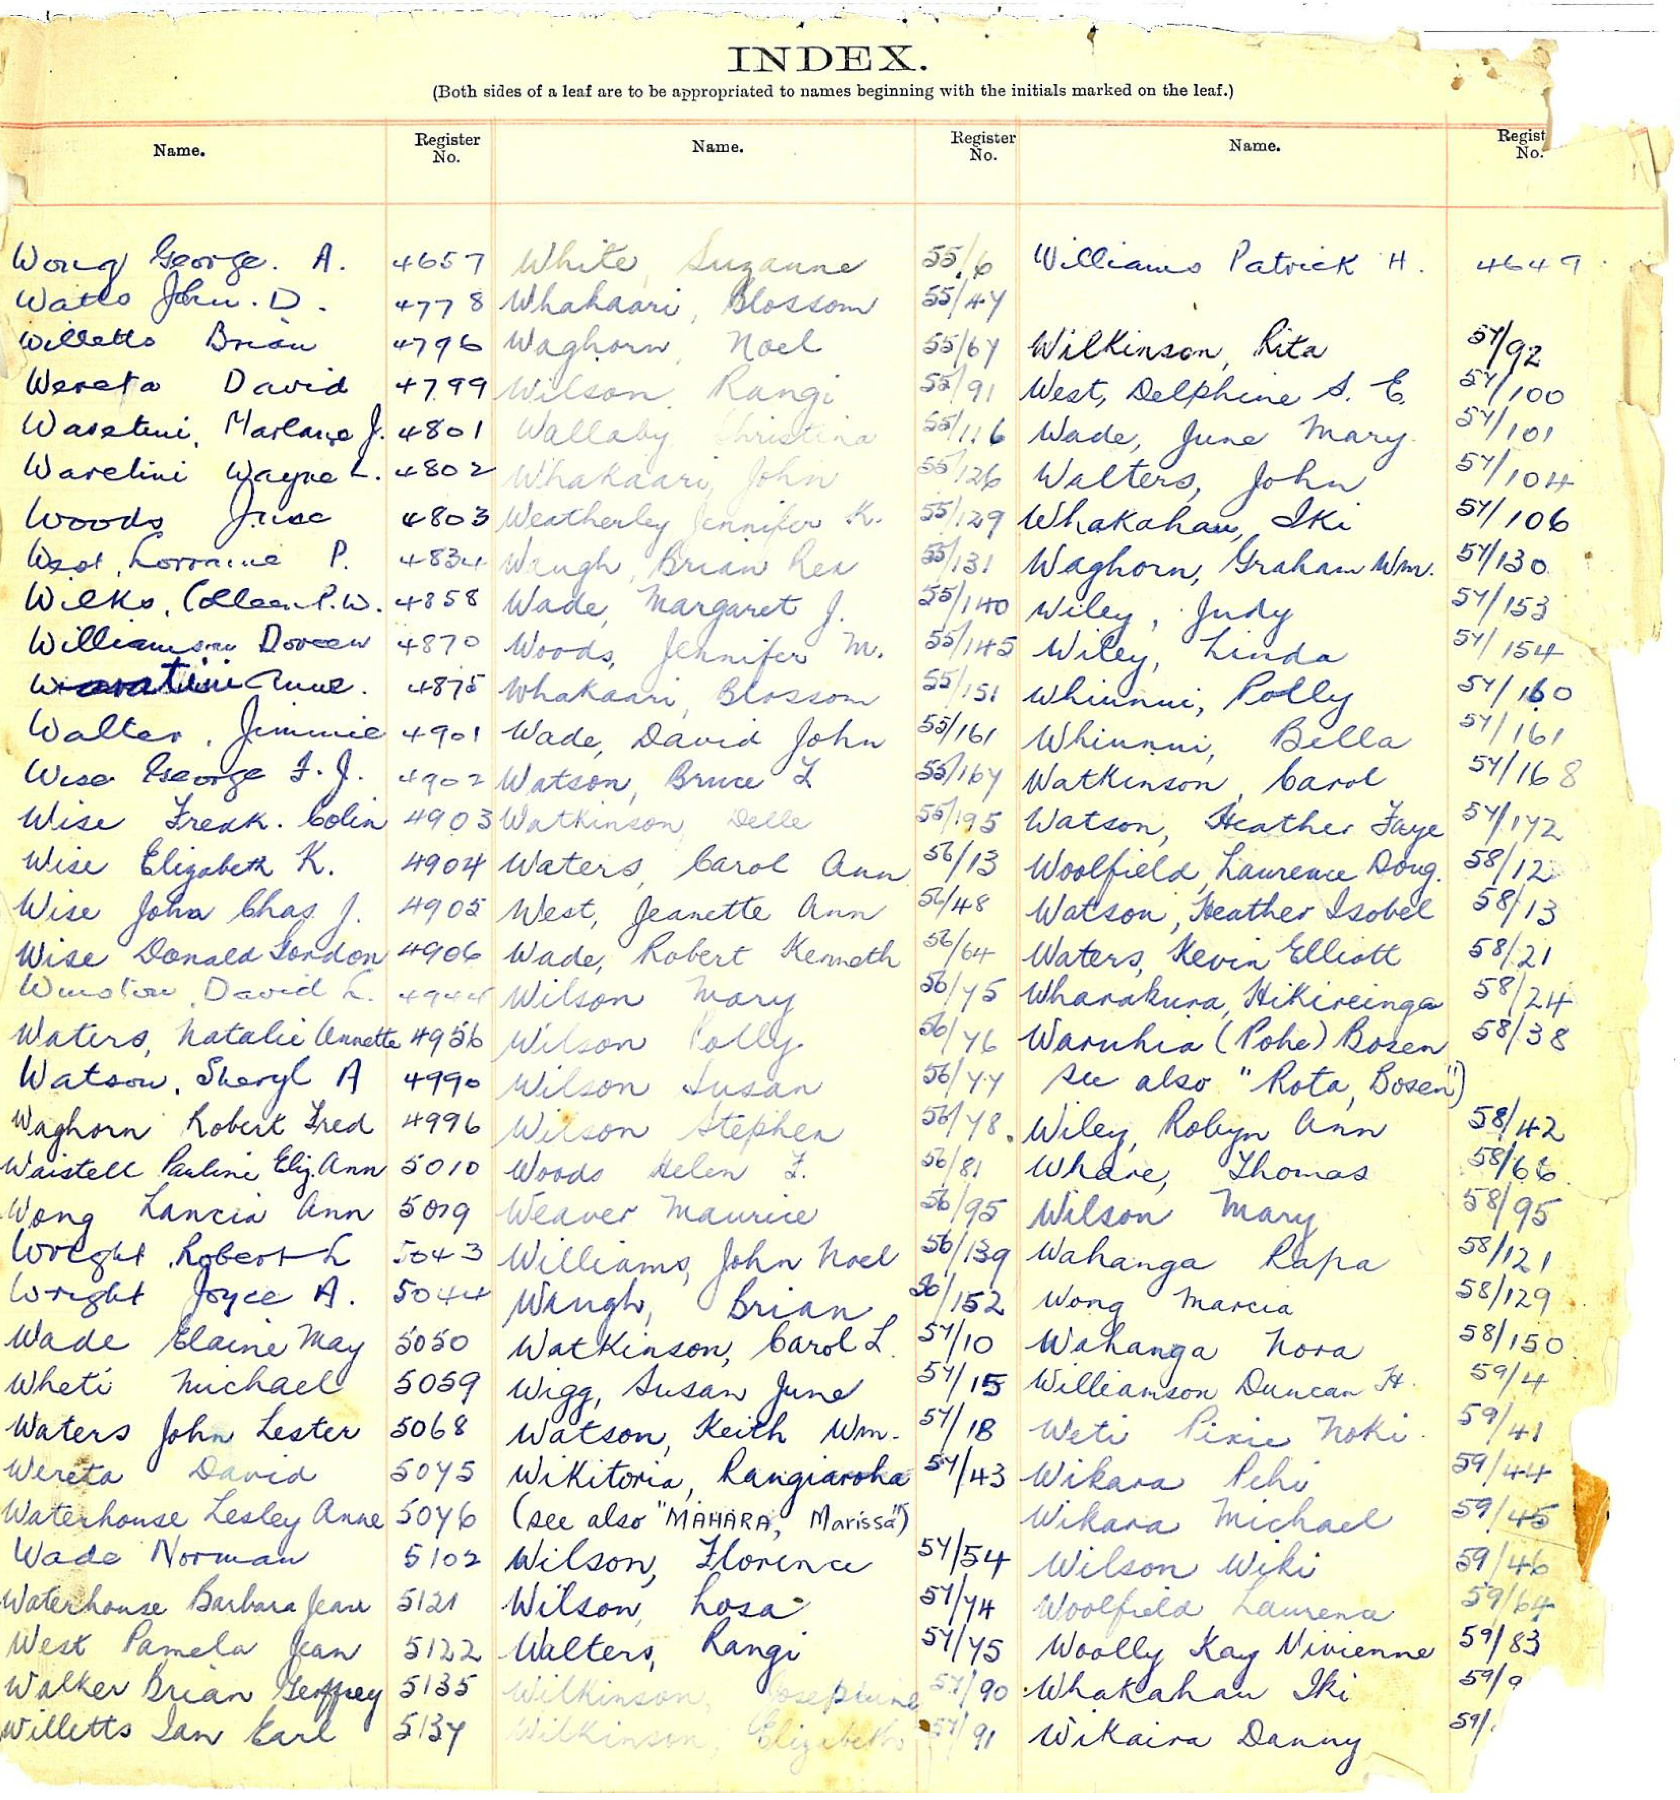 INDEX.
(Both sides of a leaf are to be appropriated to names beginning with the initials marked on the leaf.)
Name. Register No.
Wong George. A. 4657
Watts John. D. 4778
Willetts Brian 4796
Wereta David 4799
Waretini, Marlane J. 4801
Waretini Wayne L. 4802
Woods June 4803
West, Lorraine P. 4834
Wilks, Colleen P.W. 4858
Williamson Doreen 4870
Waratini Anne. 4875
Walter, Jimmie 4901
Wise George F. J. 4902
Wise Fredk. Colin 4903
Wise Elizabeth K. 4904
Wise John Chas J. 4905
Wise Donald Gordon 4906
Winston, David L. 4944
Waters, Natalie Annette 4956
Watson, Sheryl A 4990
Waghorn Robert Fred 4996
Waistell Pauline Eliz. Ann 5010
Wong Lancia Ann 5019
Wright Robert L 5043
Wright Joyce A. 5044
Wade Elaine May 5050
Wheti Michael 5059
Waters John Lester 5068
Wereta David 5075
Waterhouse Lesley Anne 5076
Wade Norman 5102
Waterhouse Barbara Jean 5121
West Pamela Jean 5122
Walker Brian Geoffrey 5135
Willetts Ian Earl 5137
Name. Register No.
White, Suzanne 55/6
Whakaari, Blossom 55/47
Waghorn, Noel 55/67
Wilson, Rangi 55/91
Wallaby, Christina 55/116
Whakaari, John 55/126
Weatherley Jennifer K. 55/129
Waugh, Brian Rex 55/131
Wade, Margaret J. 55/140
Woods, Jennifer M. 55/145
Whakaari, Blossom 55/151
Wade, David John 55/161
Watson, Bruce L 55/167
Watkinson, Delle 55/195
Waters, Carol Ann 56/13
West, Jeanette Ann 56/48
Wade, Robert Kenneth 56/64
Wilson Mary 56/75
Wilson Polly 56/76
Wilson Susan 56/77
Wilson Stephen 56/78
Woods Helen F. 56/81
Weaver Maurice 56/95
Williams, John Noel 56/139
Waugh, Brian 56/152
Watkinson, Carol L. 57/10
Wigg, Susan June 57/15
Watson, Keith Wm. 57/18
Wikitoria, Rangiaroha 57/43
(see also "MAHARA, Marissa")
Wilson, Florence 57/54
Wilson, Losa 57/74
Walters, Rangi 57/75
Wilkinson, Josephine 57/90
Wilkinson, Elizabeth 57/91
Name. Regist No.
Williams Patrick H. 4649
Wilkinson, Rita 57/92
West, Delphine S. E. 57/100
Wade, June Mary 57/101
Walters, John 57/104
Whakahau, Iki 57/106
Waghorn, Graham Wm. 57/130
Wiley, Judy 57/153
Wiley, Linda 57/154
Whiunui, Polly 57/160
Whiunui, Bella 57/161
Watkinson, Carol 57/168
Watson, Heather Faye 57/172
Woolfield, Laurence Doug. 58/12
Watson, Heather Isobel 58/13
Waters, Kevin Elliott 58/21
Wharakura, Hikireinga 58/24
Waruhia (Pohe) Bosen 58/38
see also "Rota, Bosen")
Wiley, Robyn Ann 58/42
Whare, Thomas 58/66
Wilson Mary 58/95
Wahanga Rapa 58/121
Wong Marcia 58/129
Wahanga Nora 58/150
Williamson Duncan H. 59/4
Weti Pixie Noki 59/41
Wikara Pehi 59/44
Wikara Michael 59/45
Wilson Wiki 59/46
Woolfield Laurence 59/64
Woolly Kay Vivienne 59/83
Whakahau Iki 59/9
Wikaira Danny 59/